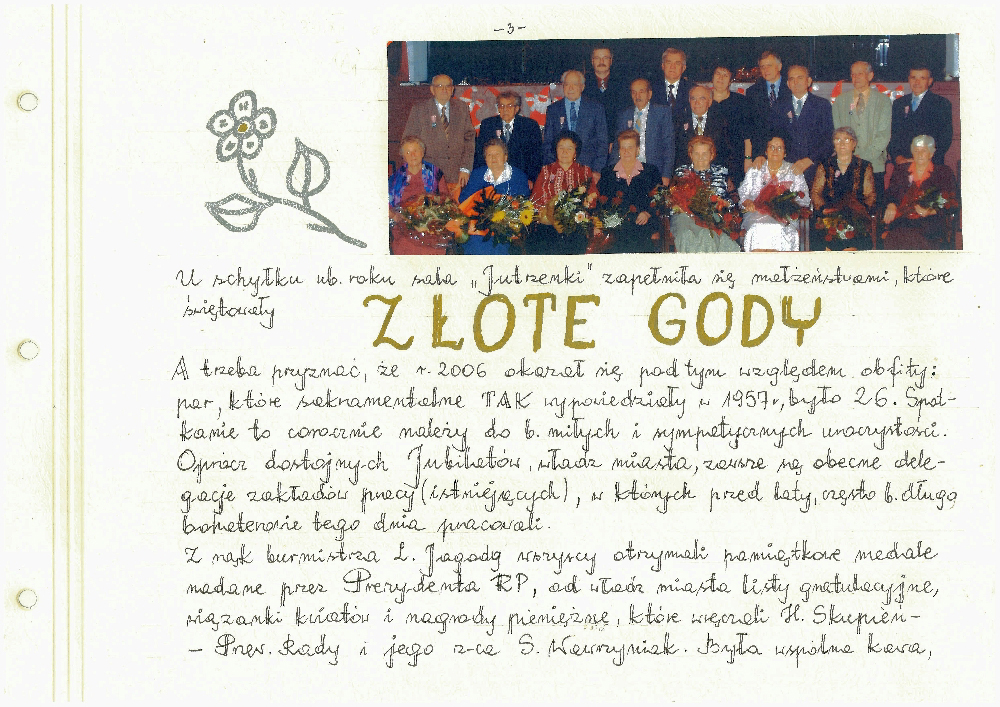 -3-
U schyłku ub. roku sala „Jutrzenki" zapełniła się małżeństwami, które
świętowały
ZŁOTE GODY
A trzeba przyznać, że r. 2006 okazał się pod tym względem obfity:
par, które sakramentalne TAK wypowiedziały w 1957r, było 26. Spot-
kanie to corocznie należy do b. miłych i sympatycznych uroczystości.
Oprócz dostojnych Jubilatów, władz miasta, zawsze są obecne dele-
gacje zakładów pracy (istniejących), w których przed laty, często b. długo
bohaterowie tego dnia pracowali.
Z rąk burmistrza L. Jagody wszyscy otrzymali pamiątkowe medale
nadane przez Prezydenta RP, od władz miasta listy gratulacyjne,
wiązanki kwiatów i nagrody pieniężne, które wręczali H. Skupień-
- Przew. Rady i jego z-ca S. Wawrzyniak. Była wspólna kawa,